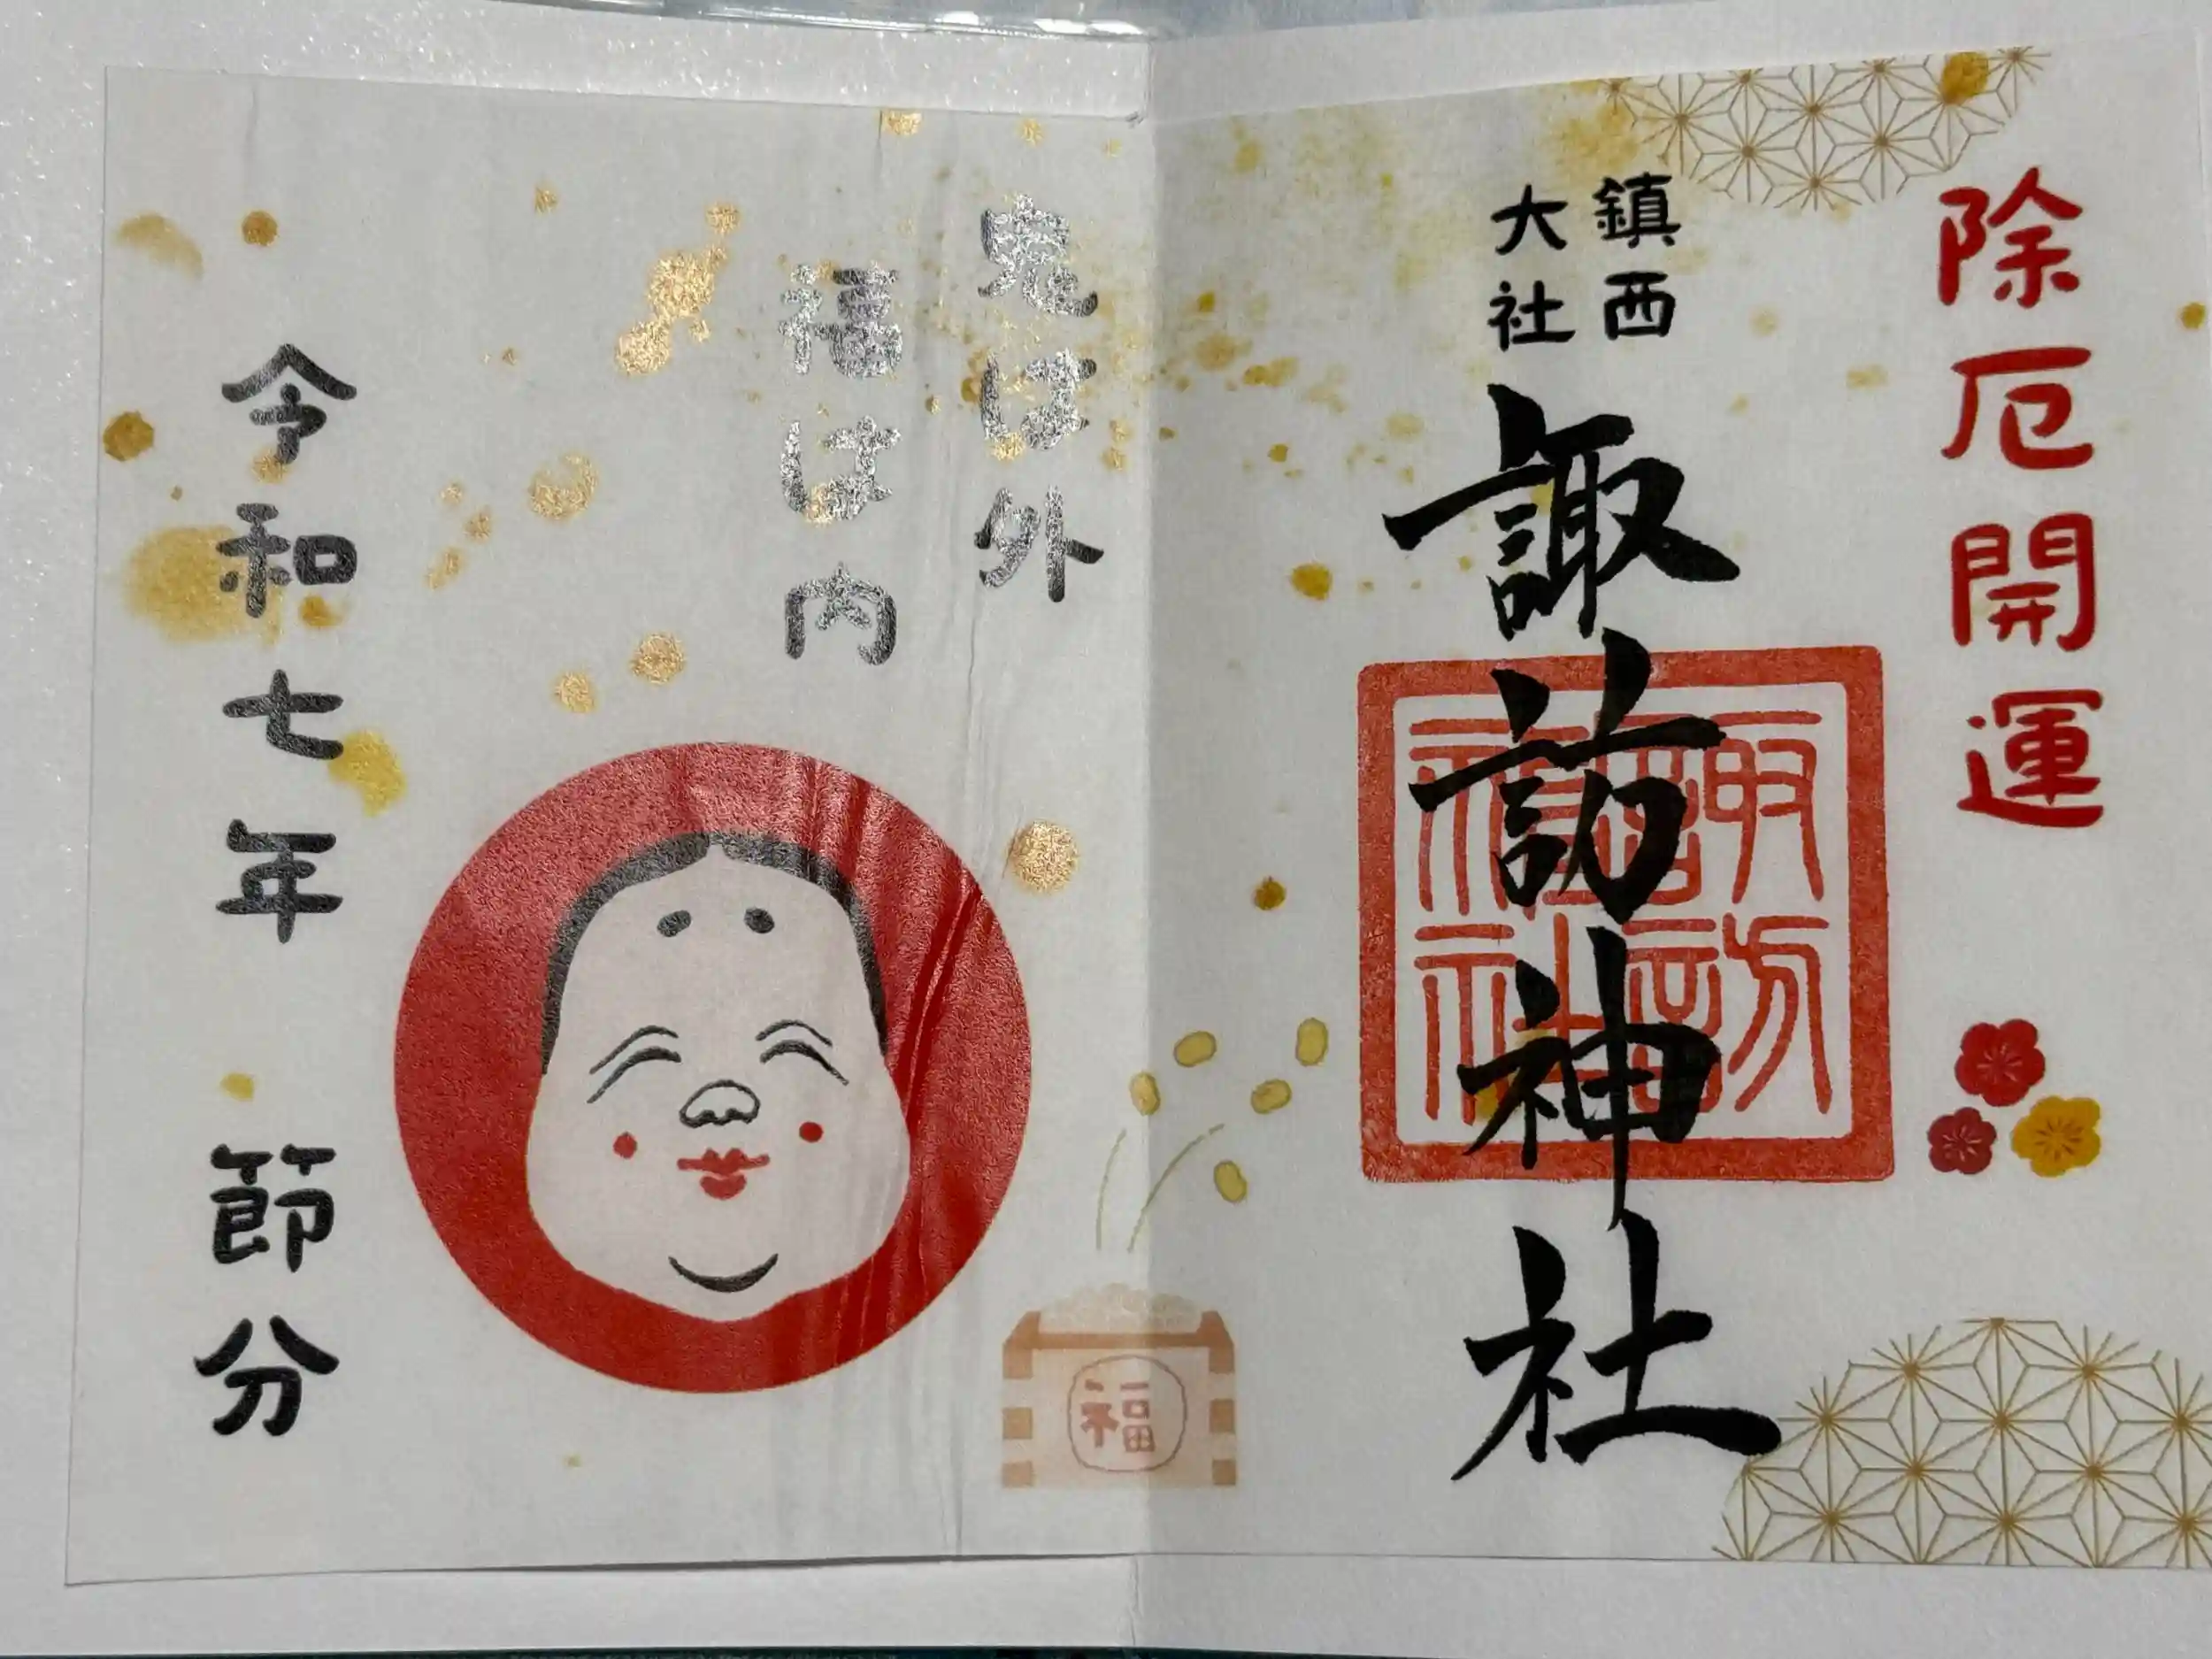 除厄開運
鎮西
大社
諏訪神社
諏訪
神社
鬼は外
福は内
福
令和七年 節分